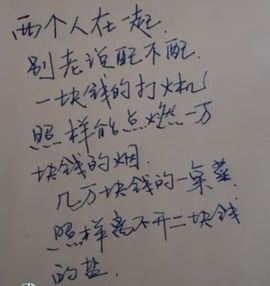 两个人在一起.
别老说配不配.
一块钱的打火机
照样能点燃一万
块钱的烟.
几万块钱的一桌菜.
照样离不开二块钱
的盐.